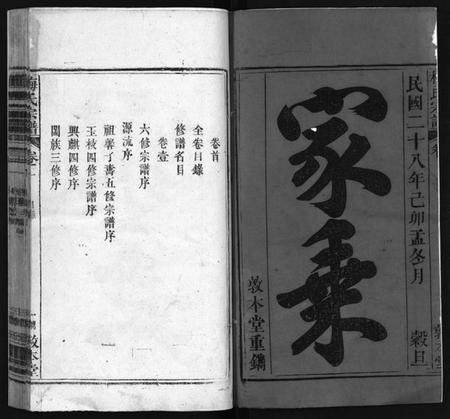 民國二十八年己卯孟冬月
穀旦
家乘
敦本堂重鐫
卷首
全卷目錄
修譜名目
卷壹
六修宗譜序
源流序
祖馨子壽五修宗譜序
玉枝四修宗譜序
興麒四修序
闔族三修序
梅氏宗譜
卷首
敦本堂